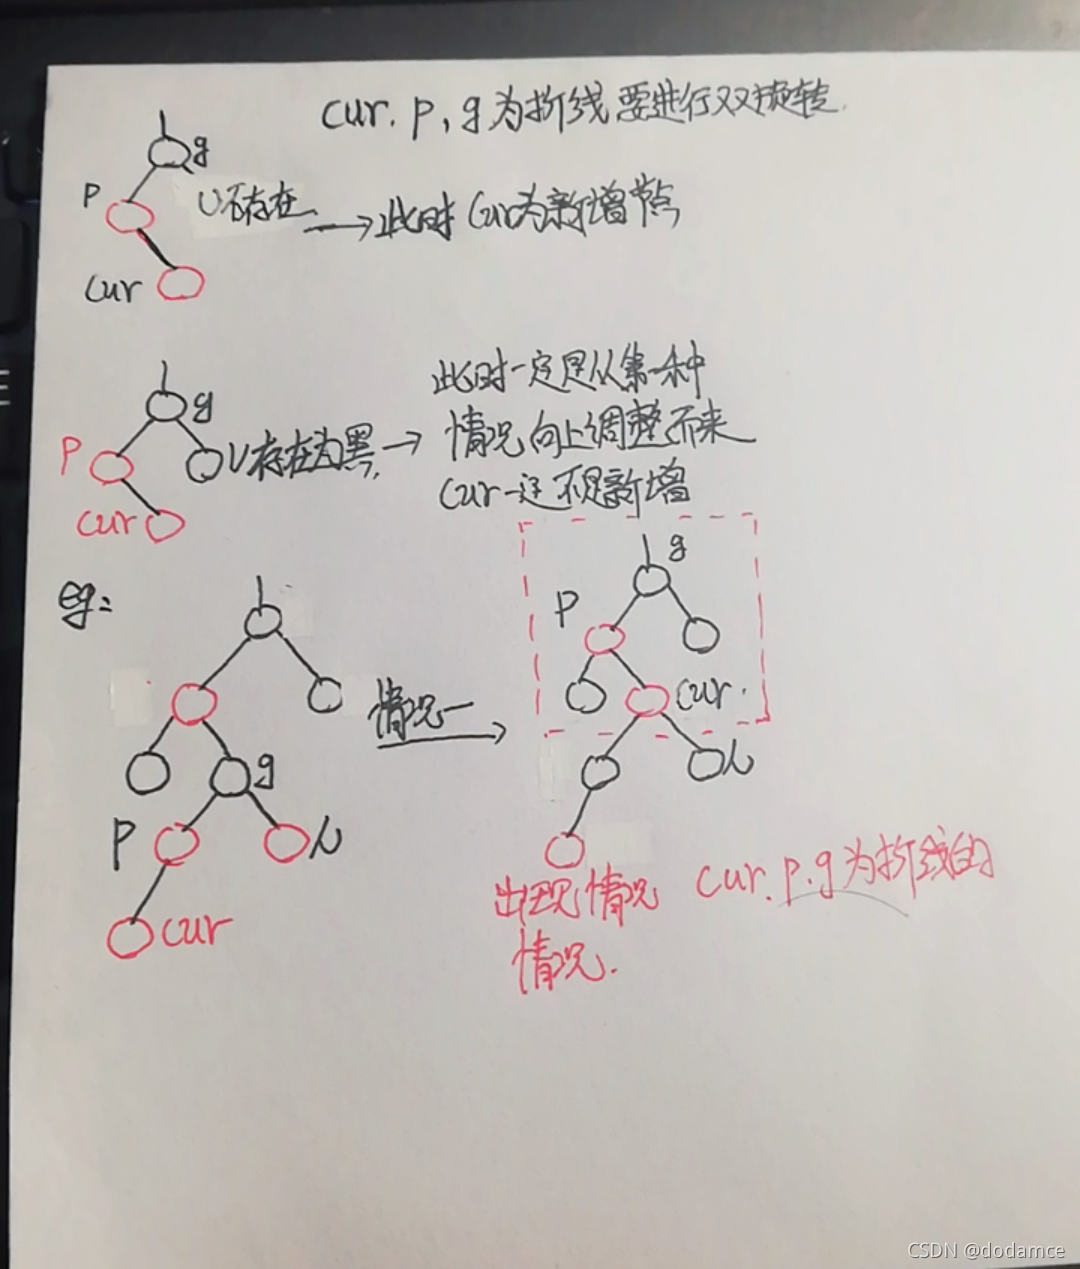 cur. p, g为折线要进行双旋转.
g
P
U不存在. → 此时 Cur为新增节点
cur
g
此时一定是从第一种
P
U存在为黑, → 情况向上调整而来
cur
cur一定不是新增
eg:
g
P
情况一
cur.
g
u
P
u
cur
出现情况 cur. p. g为折线的
情况.
CSDN @dodamce